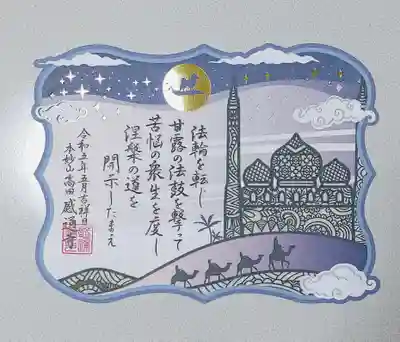 法輪を転じ
甘露の法鼓を撃って
苦悩の衆生を度し
涅槃の道を
開示したまえ
令和五年五月吉祥日
本妙山高田感通寺